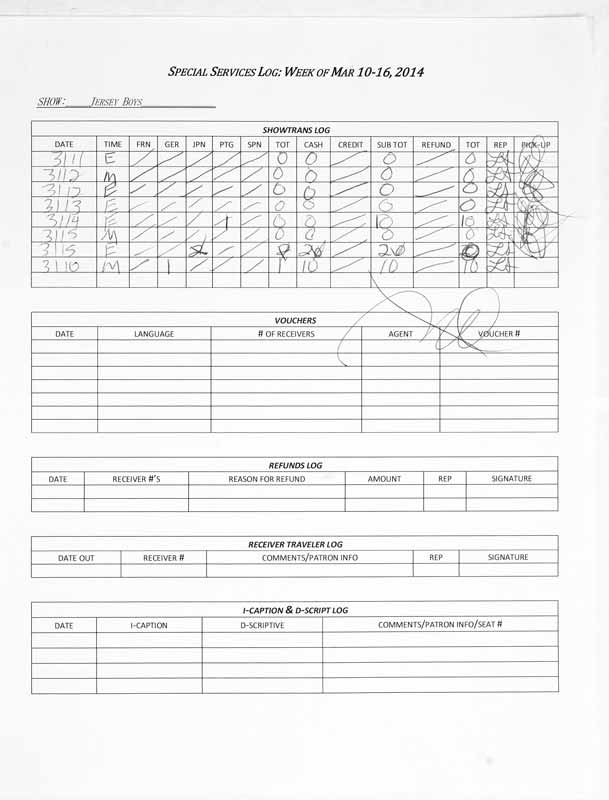 SPECIAL SERVICES LOG: WEEK OF MAR 10-16, 2014
SHOW: JERSEY BOYS
SHOWTRANS LOG
DATE TIME FRN GER JPN PTG SPN TOT CASH CREDIT SUB TOT REFUND TOT REP PICK-UP
3/11 E / / / / / 0 0 / 0 / 0
3/12 M / / / / / 0 0 / 0 / 0
3/12 E / / / / / 0 0 / 0 / 0
3/13 E / / / / / 0 0 / 0 / 0
3/14 E / / / 1 / / 10 / 10
3/15 M / / / / / 0 0 / 0 / 0
3/15 E / / / / 20 / 20 /
3/16 M / 1 / / / 1 10 / 10 / 10
VOUCHERS
DATE LANGUAGE # OF RECEIVERS AGENT VOUCHER #
REFUNDS LOG
DATE RECEIVER #'S REASON FOR REFUND AMOUNT REP SIGNATURE
RECEIVER TRAVELER LOG
DATE OUT RECEIVER # COMMENTS/PATRON INFO REP SIGNATURE
I-CAPTION & D-SCRIPT LOG
DATE I-CAPTION D-SCRIPTIVE COMMENTS/PATRON INFO/SEAT #